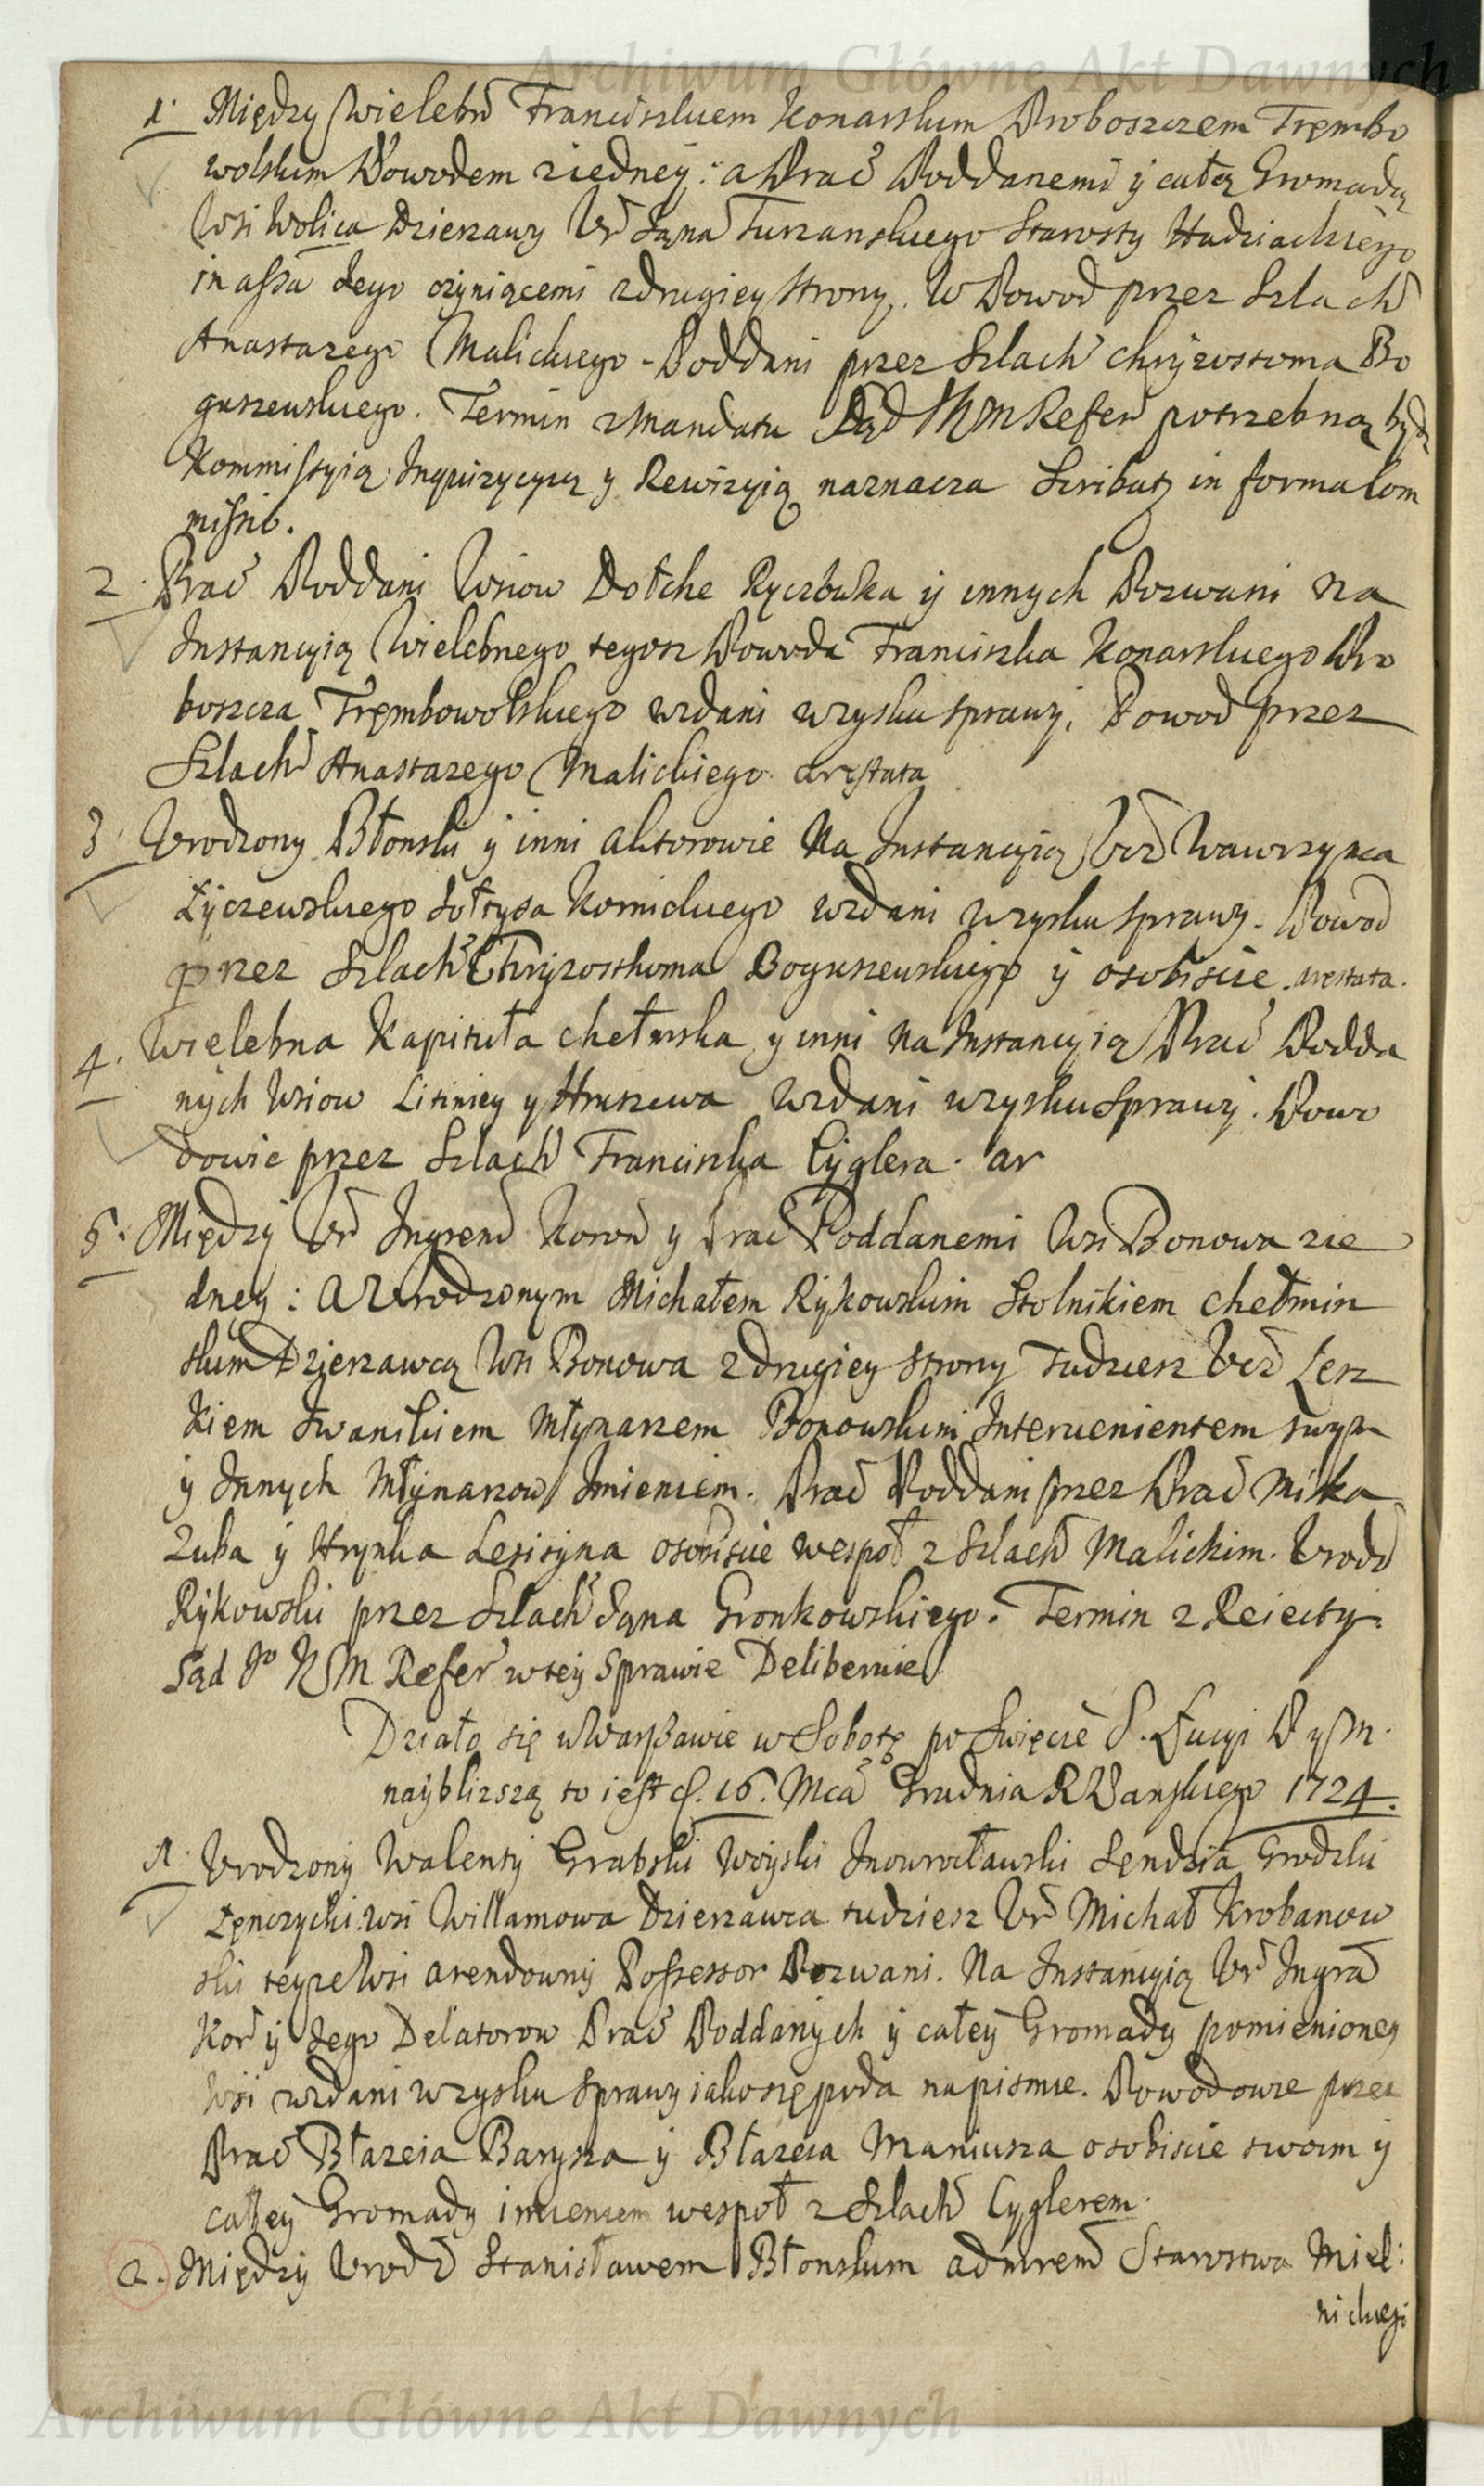 Archiwum Główne Akt Dawnych
1. Między Wielebń Franciszkiem Konarskim Proboszczem Trembo
wolskim Powodem ziedney: a Prać Poddanemi y całą Gromadą
Wsi Wolica Dzierzawy Ur Jana Turzanskiego Starosty Hadziackiego
in assa Jego czyniącemi zdrugiey strony. W Powod przez Szlach
Anastazego Malickiego - Poddani przez Szlach Chryzostoma Bo
guszewskiego. Termin z Mandatu Sąd Refer potrzebną bydz
Kommissyią Inquizycyią y Rewizyią naznacza Scribatz in forma Com
missio.
2. Prać Poddani Wsiow Dołche Ryczbuka y innych Pozwani na
Instancyią Wielebnego tegosz Powoda Franciszka Konarskiego Pro
boszcza Trembowolskiego wzdani wzysku sprawy. Powod przez
Szlach Anastazego Malickiego. arestata
3. Urodzony Błonski y inni aktorowie Na Instancyią Ucz Wawrzynca
Łyczewskiego Sołtysa Kornickiego wzdani wzysku sprawy. Powod
przez Szlach Chryzosthoma Boguszewskiego y osobiscie. arestata.
4. Wielebna Kapituła chełmska y inni Na Instancyią Prać Podda
nych Wsiow Litiniey y Hruszewa wzdani wzysku Sprawy. Powo
dowie przez Szlach Franciszka Cyglera. ar
5. Między Ur Ingrend Koron y Prać Poddanemi Wsi Bonowa zie
dney: a Urodzonym Michałem Rykowskim Stolnikiem chełmin
skim Dzierzawcą Wsi Bonowa zdrugiey strony Tudziesz Ucz Lesz
kiem Iwanikiem Młynarzem Bonowskim Interuenientem swym
y Innych Młynarzow Imieniem. Prać Poddani przez Prać Miska
Zuba y Hrynka Lesisyna osobiscie wespoł z Szlach Malickim. Urodz
Rykowski przez Szlach Jana Gronkowskiego. Termin z Reiecty.
Sąd Jo K M Refer wtey Sprawie Deliberuie
Działo się w Warszawie w Sobotę po Święcie S. Łucyi P y M.
nayblizszą to iest d. 16. Mca Grudnia R Panskiego 1724.
1. Urodzony Walenty Grabski Woyski Inowrocławski Sendzia Grodzki
Łęnczycki wsi Willamowa Dzierzawca tudziesz Ur Michał Krobanow
ski teyze Wsi arendowny Possessor Pozwani. Na Instancyią Ur Ingrd
Kor y Jego Delatorow Prać Poddanych y całey Gromady pomienioney
Wsi wzdani wzysku Sprawy iako się poda napismie. Powodowie przez
Prać Błazeia Barysza y Błazeia Maniusza osobiscie swoim y
całey Gromady imieniem wespoł z Szlach Cyglerem.
2. Między Urodz Stanisławem Błonskim admrem Starostwa Miel:
nickiego
Archiwum Główne Akt Dawnych